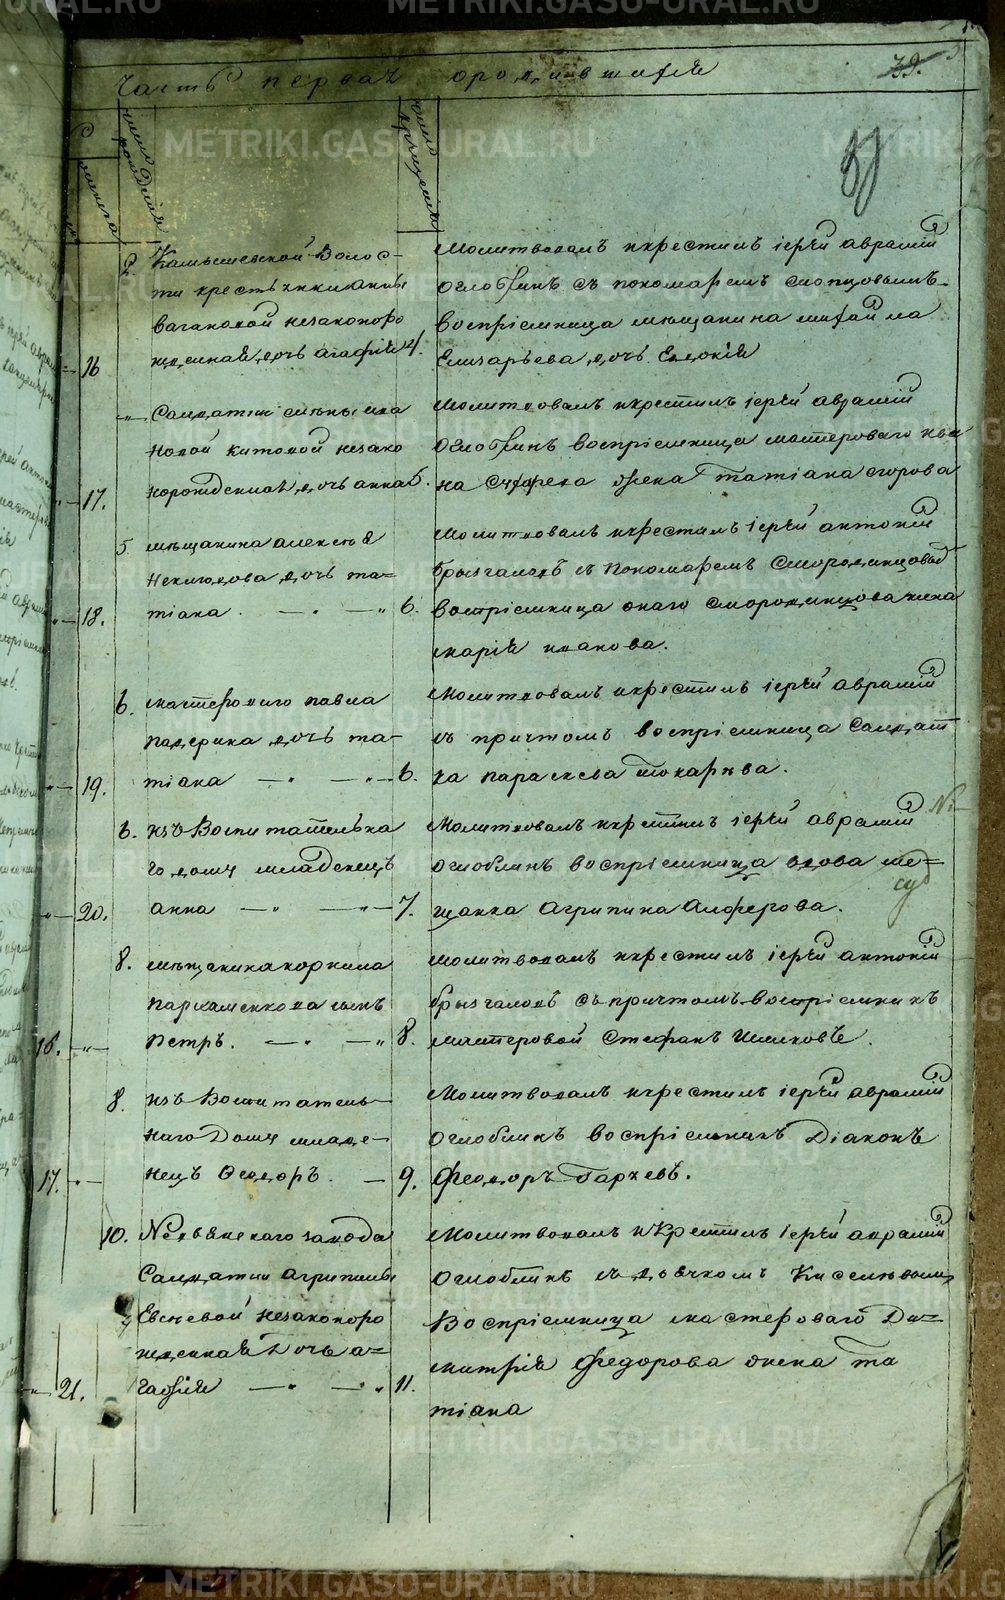 METRIKI.GASO-URAL.RU
39.
Часть первая о родившихся
число рождения
число крещения
16
2
Камышевской Волос-
ти крестьянки Анны
Вагановой незаконоро
жденная дочь Агафия
4.
Молитвовалъ и крестилъ іерей Авраамій
Оглоблинъ съ пономаремъ
воспріемница мѣщанина Михайла
Елизарьева дочь Евдокія
17.
Салдатки
новой Китовой незако
норожденная дочь Анна
5.
Молитвовалъ и крестилъ іерей Авраамій
Оглоблинъ воспріемница мастероваго Ива
на жена Татіана Егорова
18.
5
мѣщанина Алексѣя
Неклюдова дочь та=
тіана
6.
Молитвовалъ и крестилъ іерей Антоній
Брызгаловъ съ пономаремъ Смородинцовы
воспріемница онаго Смородинцова жена
Марія Иванова.
19.
6.
мастероваго Павла
Падерина дочь та-
тіана
6.
Молитвовалъ и крестилъ іерей Авраамій
съ причтомъ воспріемница Салдат
ка Параскева Токарева.
20.
6.
изъ Воспитательна
го дому младенецъ
Анна
7.
Молитвовалъ и крестилъ іерей Авраамій
Оглоблинъ воспріемница вдова ме=
щанка Агрипина Алферова.
16.
8.
мѣщанина Корнила
Пархаменкова сынъ
Петръ.
8.
Молитвовалъ и крестилъ іерей Антоній
Брызгаловъ съ причтомъ воспріемникъ
мастеровой Стефанъ
17.
8.
изъ Воспитатель-
наго Дому младе-
нецъ Ѳеодоръ.
9.
Молитвовалъ и крестилъ іерей Авраамій
Оглоблинъ воспріемникъ Діаконъ
Феодоръ
21.
10.
Невьянскаго завода
Салдатки Агрипины
незаконоро
жденная Дочь А=
гафія
11.
Молитвовалъ и Крестилъ іерей Авраамій
Оглоблинъ съ дьячкомъ Киселевымъ
Воспріемница мастероваго Ди=
митрія Федорова жена Та
тіана
METRIKI.GASO-URAL.RU